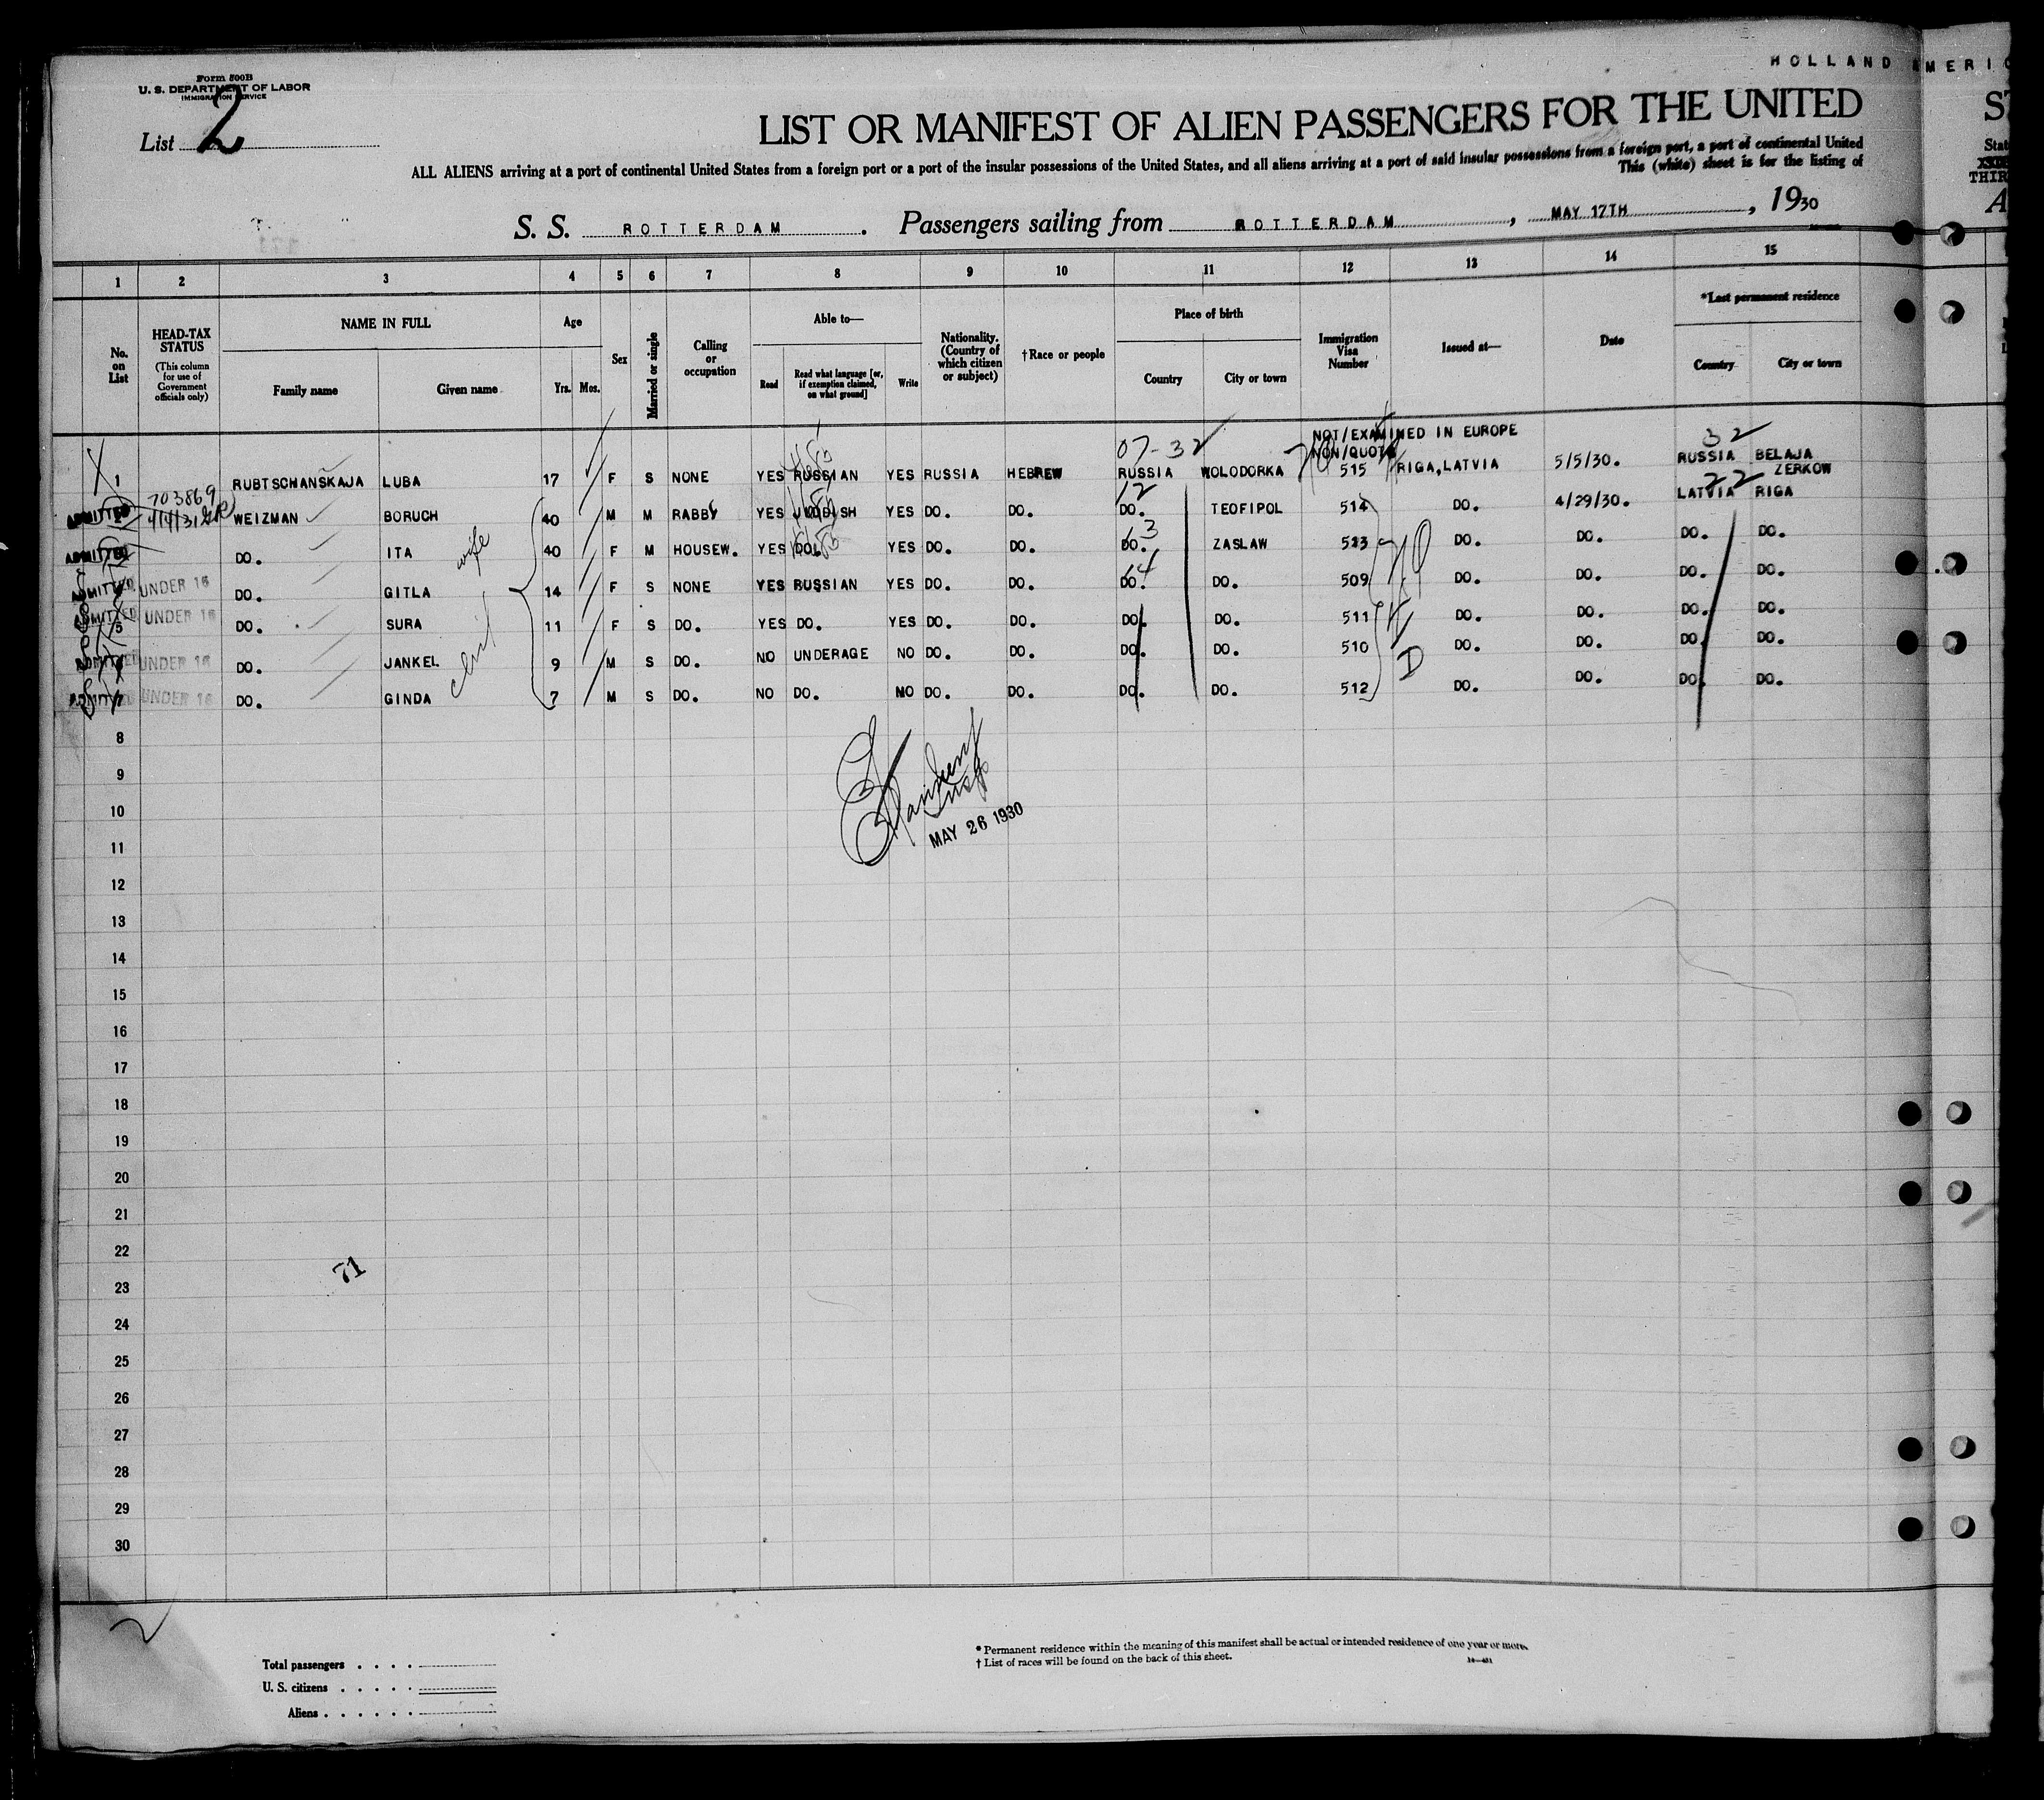 HOLLAND AMERIC
Form 500B
U. S. DEPARTMENT OF LABOR
IMMIGRATION SERVICE
List 2
LIST OR MANIFEST OF ALIEN PASSENGERS FOR THE UNITED
ALL ALIENS arriving at a port of continental United States from a foreign port or a port of the insular possessions of the United States, and all aliens arriving at a port of said insular possessions from a foreign port, a port of continental United
This (white) sheet is for the listing of
S. S. ROTTERDAM . Passengers sailing from ROTTERDAM , MAY 17TH , 1930
1 2 3 4 5 6 7 8 9 10 11 12 13 14 15
No. on List
HEAD-TAX STATUS
(This column for use of Government officials only)
NAME IN FULL
Family name Given name
Age
Yrs. Mos.
Sex
Married or single
Calling or occupation
Able to—
Read
Read what language [or, if exemption claimed, on what ground]
Write
Nationality. (Country of which citizen or subject)
†Race or people
Place of birth
Country City or town
Immigration Visa Number
Issued at—
Date
*Last permanent residence
Country City or town
NOT/EXAMINED IN EUROPE
NON/QUOTA
07-32 32
1 RUBTSCHANSKAJA LUBA 17 F S NONE YES RUSSIAN YES RUSSIA HEBREW RUSSIA WOLODORKA 515 RIGA, LATVIA 5/5/30. RUSSIA BELAJA ZERKOW
703869
12 22
ADMITTED 2 4/4/31 WEIZMAN BORUCH 40 M M RABBY YES JUDDISH YES DO. DO. DO. TEOFIPOL 514 DO. 4/29/30. LATVIA RIGA
13
ADMITTED DO. ITA wife 40 F M HOUSEW. YES DO. YES DO. DO. DO. ZASLAW 513 DO. DO. DO. DO.
14
ADMITTED UNDER 16 DO. GITLA 14 F S NONE YES RUSSIAN YES DO. DO. DO. DO. 509 DO. DO. DO. DO.
ADMITTED 5 UNDER 16 DO. SURA 11 F S DO. YES DO. YES DO. DO. DO. DO. 511 DO. DO. DO. DO.
ADMITTED UNDER 16 DO. JANKEL 9 M S DO. NO UNDERAGE NO DO. DO. DO. DO. 510 DO. DO. DO. DO.
ADMITTED UNDER 16 DO. GINDA 7 M S DO. NO DO. NO DO. DO. DO. DO. 512 DO. DO. DO. DO.
8
MAY 26 1930
9
10
11
12
13
14
15
16
17
18
19
20
21
22
71
23
24
25
26
27
28
29
30
2
Total passengers . . . .
U. S. citizens . . . . .
Aliens . . . . . .
* Permanent residence within the meaning of this manifest shall be actual or intended residence of one year or more.
† List of races will be found on the back of this sheet.